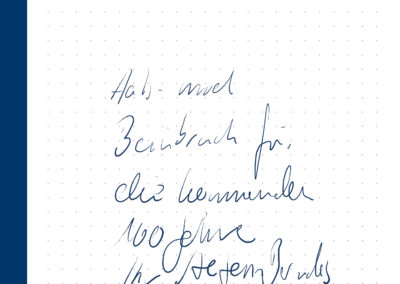 Hals- und
Beinbruch für
die kommenden
100 Jahre
Ihr